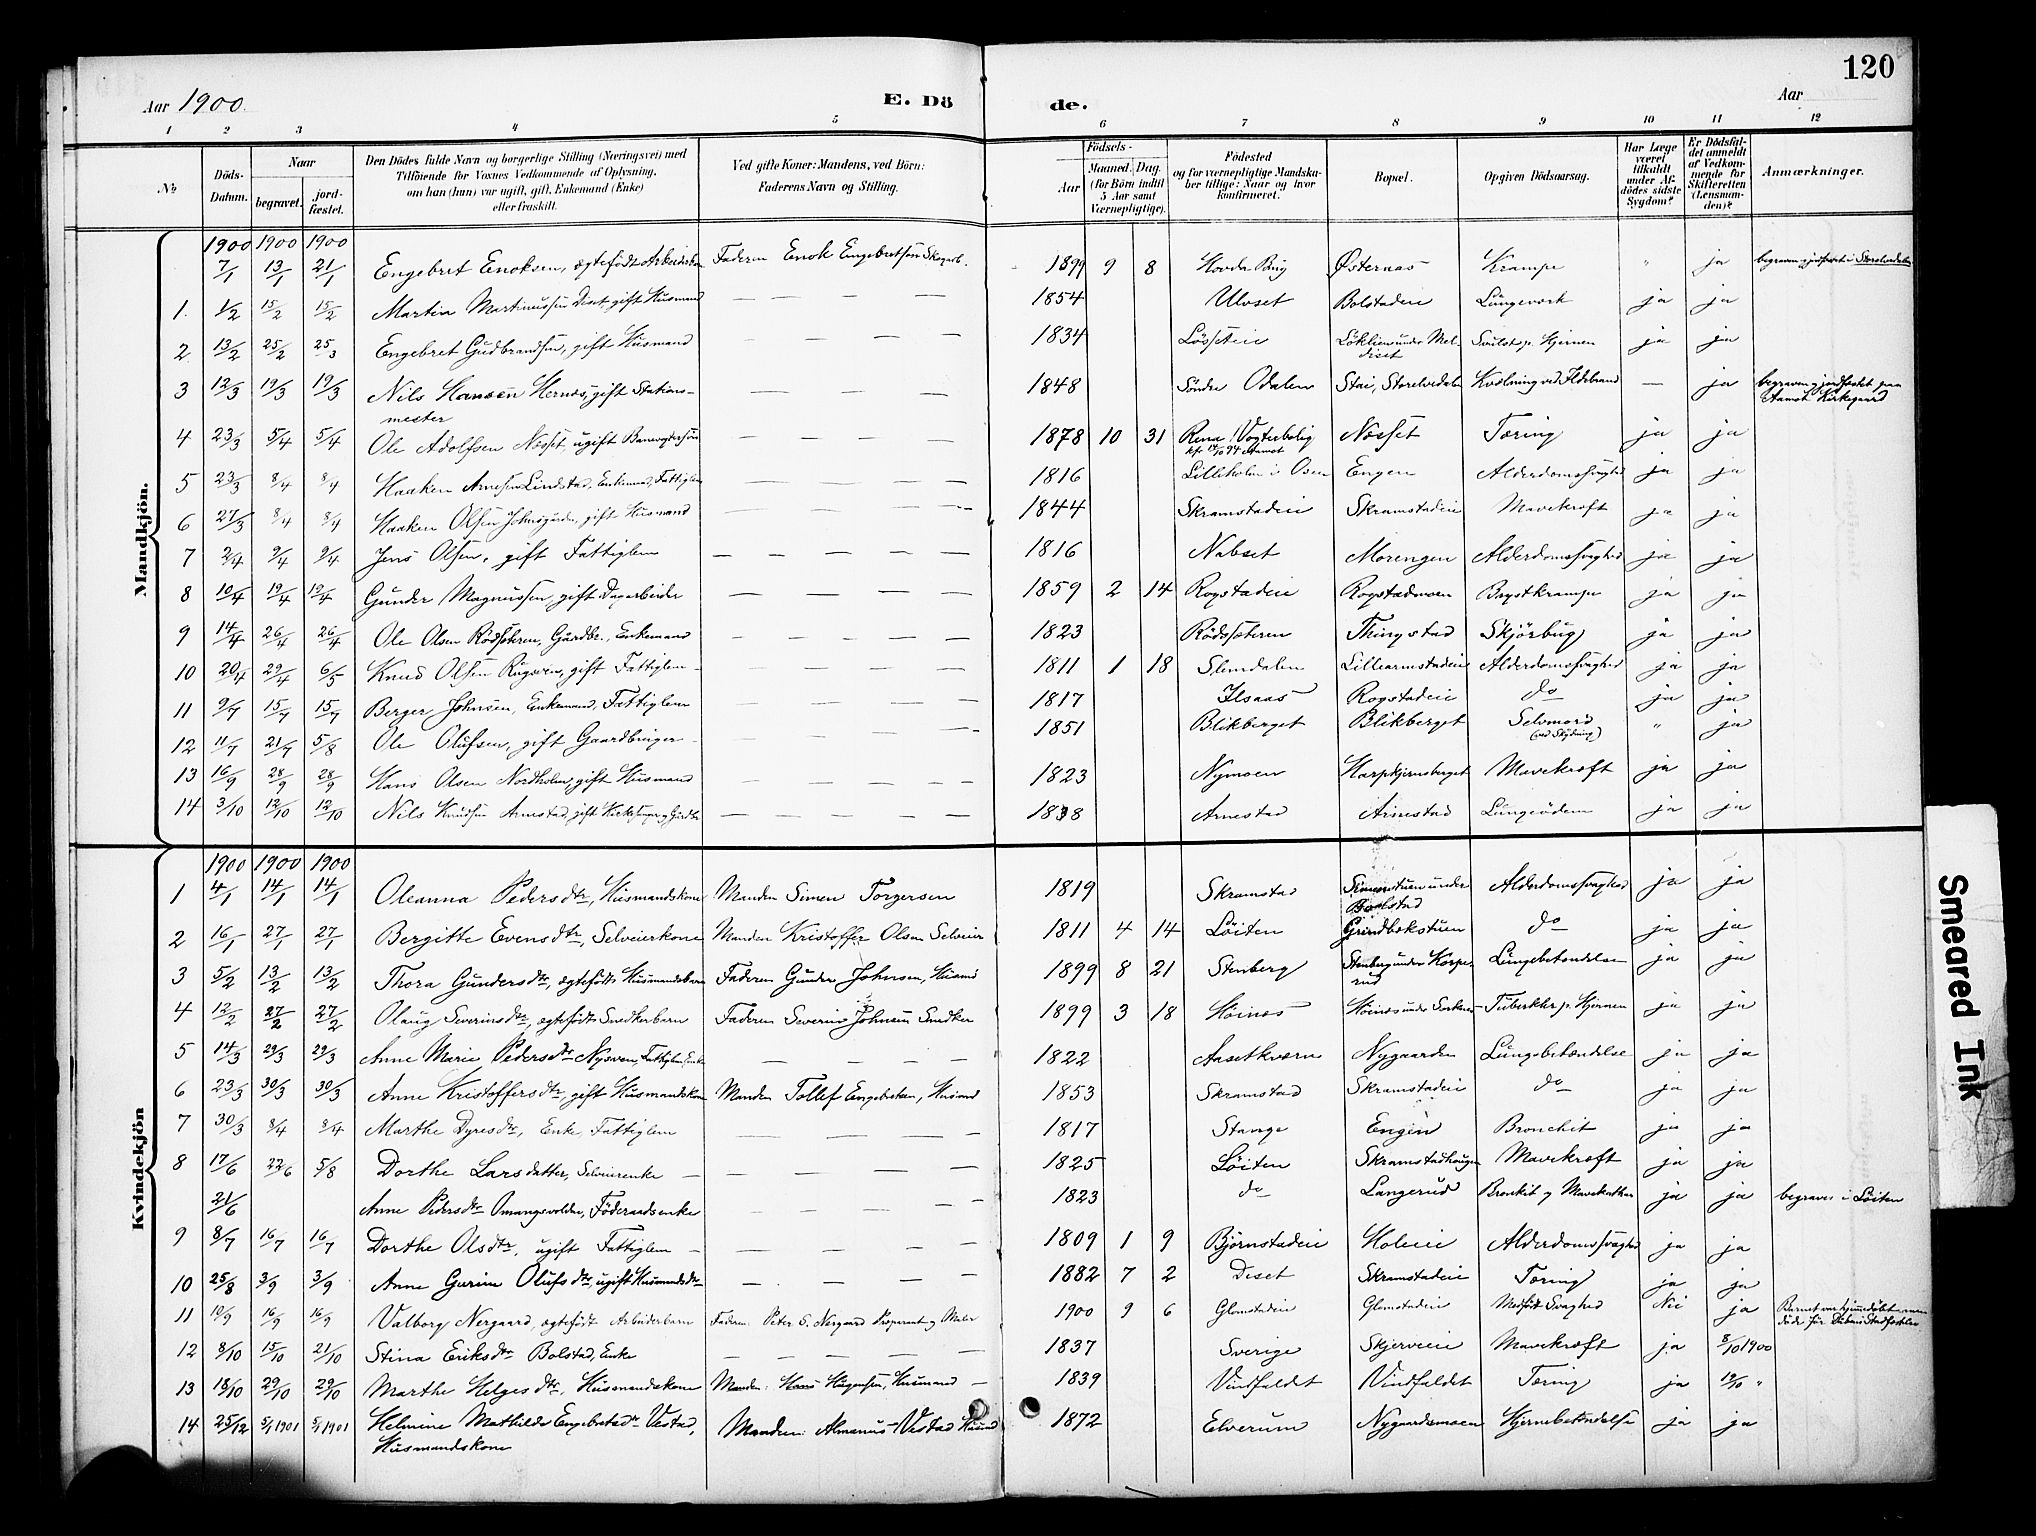 120
Aar 1900.
E. Dö
de.
Aar
1 2 3 4 5 6 7 8 9 10 11 12
No
Döds-Datum.
Naar
begravet.
jord-fæstet.
Den Dödes fulde Navn og borgerlige Stilling (Næringsvei) med
Tilföiende for Voxnes Vedkommende af Oplysning,
om han (hun) var ugift, gift, Enkemand (Enke)
eller fraskilt.
Ved gifte Koner: Mandens, ved Börn:
Faderens Navn og Stilling.
Födsels-
Aar
Maaned. Dag.
(for Börn indtil
5 Aar samt
Værnepligtige).
Födested
og for værnepligtige Mandska-
ber tillige: Naar og hvor
konfirmeret.
Bopæl.
Opgiven Dödsaarsag.
Har Læge
været
tilkaldt
under Af-
dödes sidste
Sygdom?
Er Dödsfal-
det anmeldt
af Vedkom-
mende for
Skifteretten
(Lensman-
den)?
Anmærkninger.
Mandkjön.
1900 1900 1900
7/1 13/1 21/1 Engebret Enoksen, ægtefødt Faderen Enok Engebretsen 1899 9 8 Hovda Østernæs Krampe " ja begraven jordfæstet i Storelvedalen
1. 1/2 15/2 15/2 Martin Martinussen Diset, gift Husmand — — — — 1854 Ulvset Bolstadeie Lungevork ja ja
2 13/2 25/2 25/3 Engebret Gudbrandsen, gift Husmand — — — — 1834 Løsseteie Løkleien under Mel-
diset Svulst p. Hjernen ja ja
3 12/3 19/3 19/3 Nils Hansen Hernæs, gift Stations-
mester — — — — 1848 Söndre Odalen Stai, Storelvedalen Kvælning ved Ildebrand — ja begraven jordfæstet paa
Aamot Kirkegaard
4 23/3 5/4 5/4 Ole Adolfsen Næsset, ugift — — — — 1878 10 31 Rena Vogterbolig
Næsset Tæring ja ja
5 23/3 8/4 8/4 Haaken Arnesen Lindstad, Enkemand, Fattiglem — — — — 1816 Lilleholm i Osen Engen Alderdomssvaghed ja ja
6 27/3 8/4 8/4 Haaken Olsen gift Husmand — — — — 1844 Skramstadeie Skramstadeie Mavekræft ja ja
7 2/4 9/4 9/4 Jens Olsen, gift Fattiglem — — — — — 1816 Nabset Morengen Alderdomssvaghed ja ja
8 10/4 19/4 19/4 Gunder Magnussen, gift Dagarbeider — — — — 1859 2 14 Rogstadeie Rogstadmoen Brystkrampe ja ja
9 14/4 26/4 26/4 Ole Olsen Rödsæteren, Gårdbr., Enkemand — — — — 1823 Rödsæteren Thingstad Skjörbug ja ja
10 20/4 29/4 6/5 Knud Olsen Rugsveen, gift Fattiglem — — — — 1811 1 18 Slemdalen Lillearnestadeie Alderdomssvaghed ja ja
11 9/7 15/7 15/7 Berger Johnsen, Enkemand, Fattiglem — — — — 1817 Ilsaas Rogstadeie do ja ja
12 11/7 21/7 5/8 Ole Olufsen, gift Gaardbruger — — — — 1851 Blikberget Blikberget Selvmord
(ved Skydning) " ja
13 16/9 28/9 28/9 Hans Olsen Nordholen, gift Husmand — — — — 1823 Nymoen Harpkjernsberget Mavekræft ja ja
14 3/10 12/10 12/10 Nils Knudsen Arnestad, gift Kirkesanger — — — — 1838 Arnestad Arnestad Lungeödem ja ja
Kvindekjön
1900 1900 1900
1 4/1 14/1 14/1 Oleanna Pedersdtr, Husmandskone Manden Simen Torgersen 1819 Skramstad Simenstuen under
Bolstad Alderdomssvaghed ja ja
2 16/1 27/1 27/1 Bergitte Evensdtr, Selveierkone Manden Kristoffer Olsen Selveier 1811 4 14 Løiten Grindbekstuen do ja ja
3 5/2 13/2 13/2 Thora Gundersdtr, ægtefødt Husmandsbarn Faderen Gunder Johnsen, Husmd 1899 8 21 Stenberg Stenberg under Korpe-
rud Lungebetændelse ja ja
4 12/2 27/2 27/2 Olaug Severinsdtr, ægtefødt Snedkerbarn Faderen Severin Johnsen Snedker 1899 3 18 Høinæs Høinæs under Tuberkler p. Hjernen ja ja
5 14/3 29/3 29/3 Anne Marie Pedersdtr Nysveen, Fattiglem, Enke — — — — 1822 Aasetkværn Nygaarden Lungebetændelse ja ja
6 23/3 30/3 30/3 Anne Kristoffersdtr, gift Husmandskone Manden Tollef Engebretsen, Husmand 1853 Skramstad Skramstadeie do ja ja
7 30/3 8/4 8/4 Marthe Dyresdtr, Enke, Fattiglem — — — — 1817 Stange Engen Bronchit ja ja
8 17/6 22/6 5/8 Dorthe Larsdatter, Selveierenke — — — — 1825 Løiten Skramstadhaugen Mavekræft ja ja
21/6 Anne Pedersdtr Omangsvolden, Föderaadsenke — — — — 1823 do Langerud Bronkit og Mavekathar ja ja begraves i Løiten
9 8/7 16/7 16/7 Dorthe Olsdtr, ugift Fattiglem — — — — — 1809 1 9 Björnstadeie Holeeie Alderdomssvaghed ja ja
10 25/8 3/9 3/9 Anne Gurine Olufsdtr, ugift Husmandsdtr — — — — 1882 7 2 Diset Skramstadeie Tæring ja ja
11 10/9 16/9 16/9 Valborg Nergaard, ægtefödt Arbeiderbarn Faderen: Peter S. Nergaard og Maler 1900 9 6 Glomstadeie Glomstadeie Medfödt Svaghed Nei ja Barnet var hjemmedøbt men
døde før Daabens Stadfæstelse
12 8/10 15/10 21/10 Stina Eriksdtr Bolstad, Enke — — — — — 1837 Sverige Skjerveeie Mavekræft ja 8/10 1900
13 18/10 29/10 29/10 Marthe Helgesdtr, Husmandskone Manden: Hans Haagensen, Husmand — 1839 Vindfaldet Vindfaldet Tæring ja 19/10 "
14 25/12 5/1 1901 5/1 1901 Helmine Mathilde Engebretsdtr Vestad,
Husmandskone Manden: Almanus Vestad Husmd 1872 Elverum Nygaardsmoen Hjernebetændelse ja ja
Smeared Ink